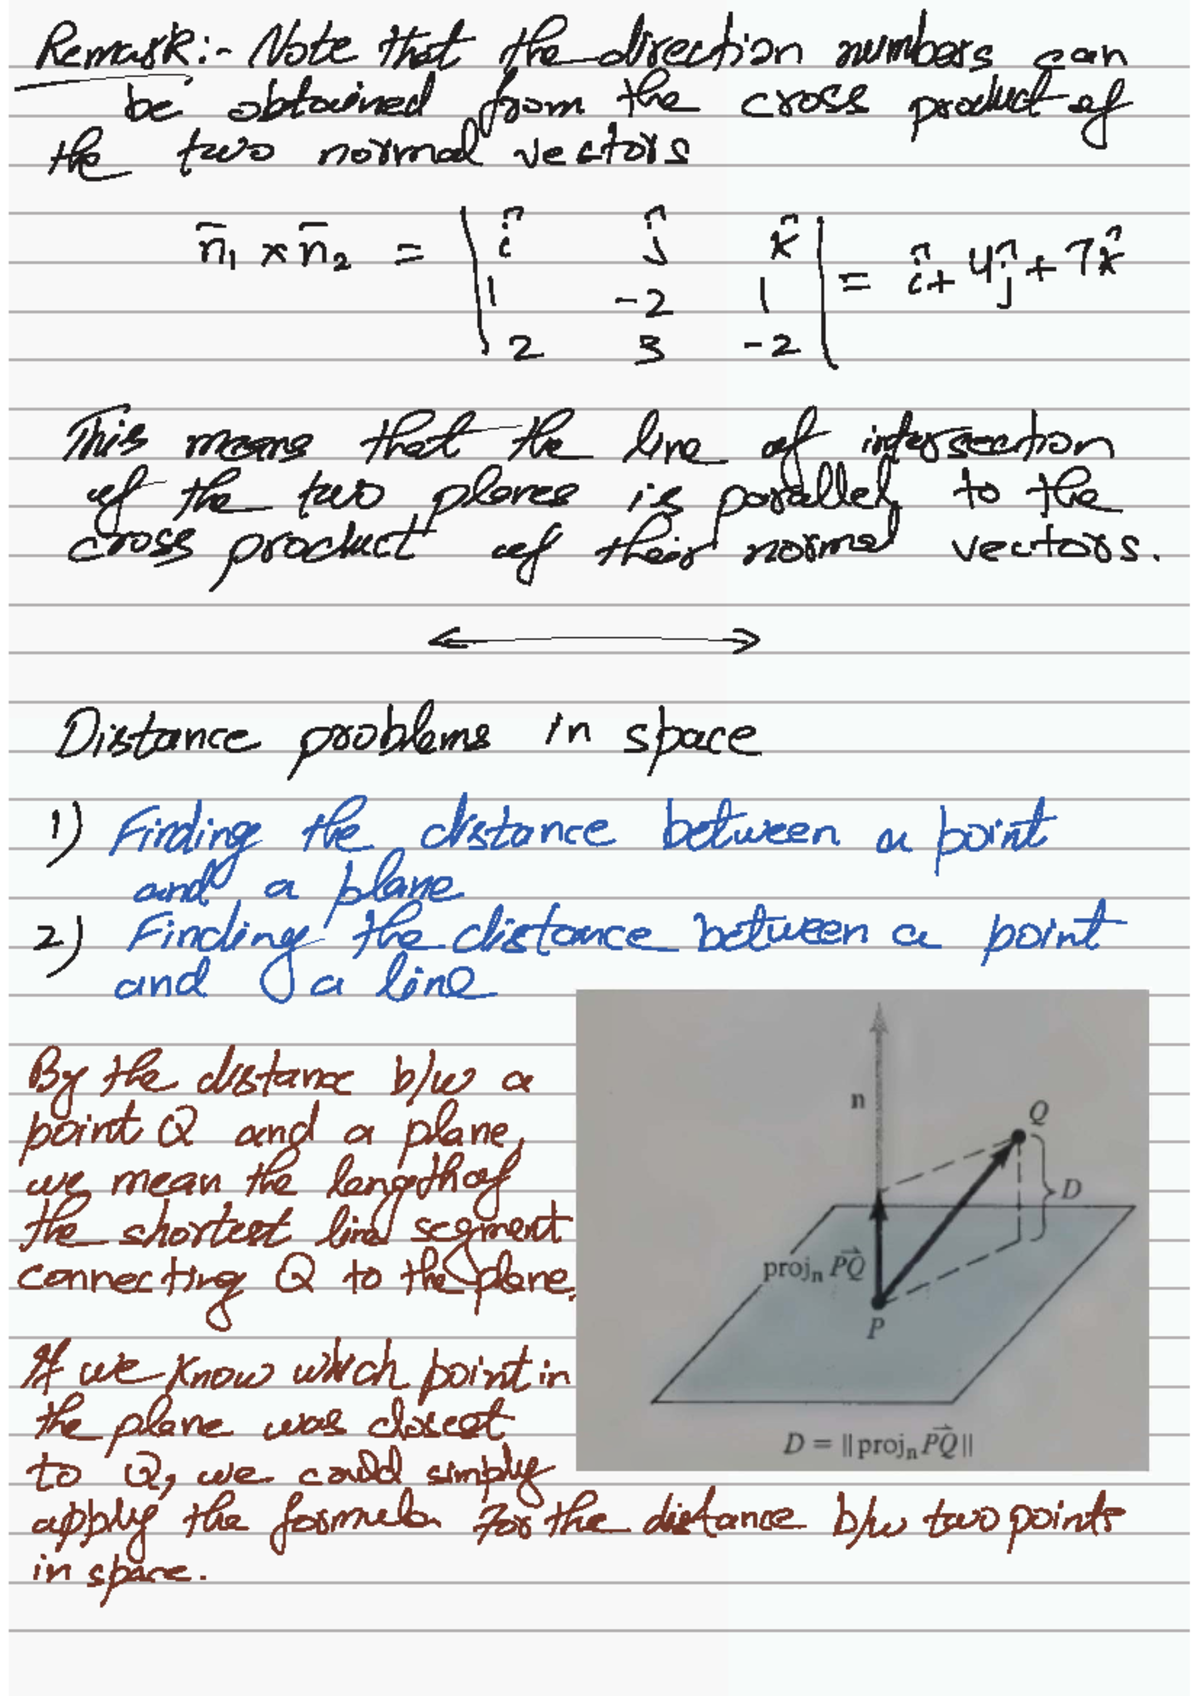 Remark:- Note that the direction numbers can
be obtained from the cross product of
the two normal vectors
n̄₁ × n̄₂ = | î ĵ k̂ | = î + 4ĵ + 7k̂
1 -2 1
2 3 -2
This means that the line of intersection
of the two planes is parallel to the
cross product of their normal vectors.
Distance problems in space
1) Finding the distance between a point
and a plane
2) Finding the distance between a point
and a line
By the distance b/w a
point Q and a plane,
we mean the length of
the shortest line segment
connecting Q to the plane.
If we know which point in
the plane was closest
to Q, we could simply
apply the formula for the distance b/w two points
in space.
n
Q
D
projₙ PQ⃗
P
D = || projₙ PQ⃗ ||